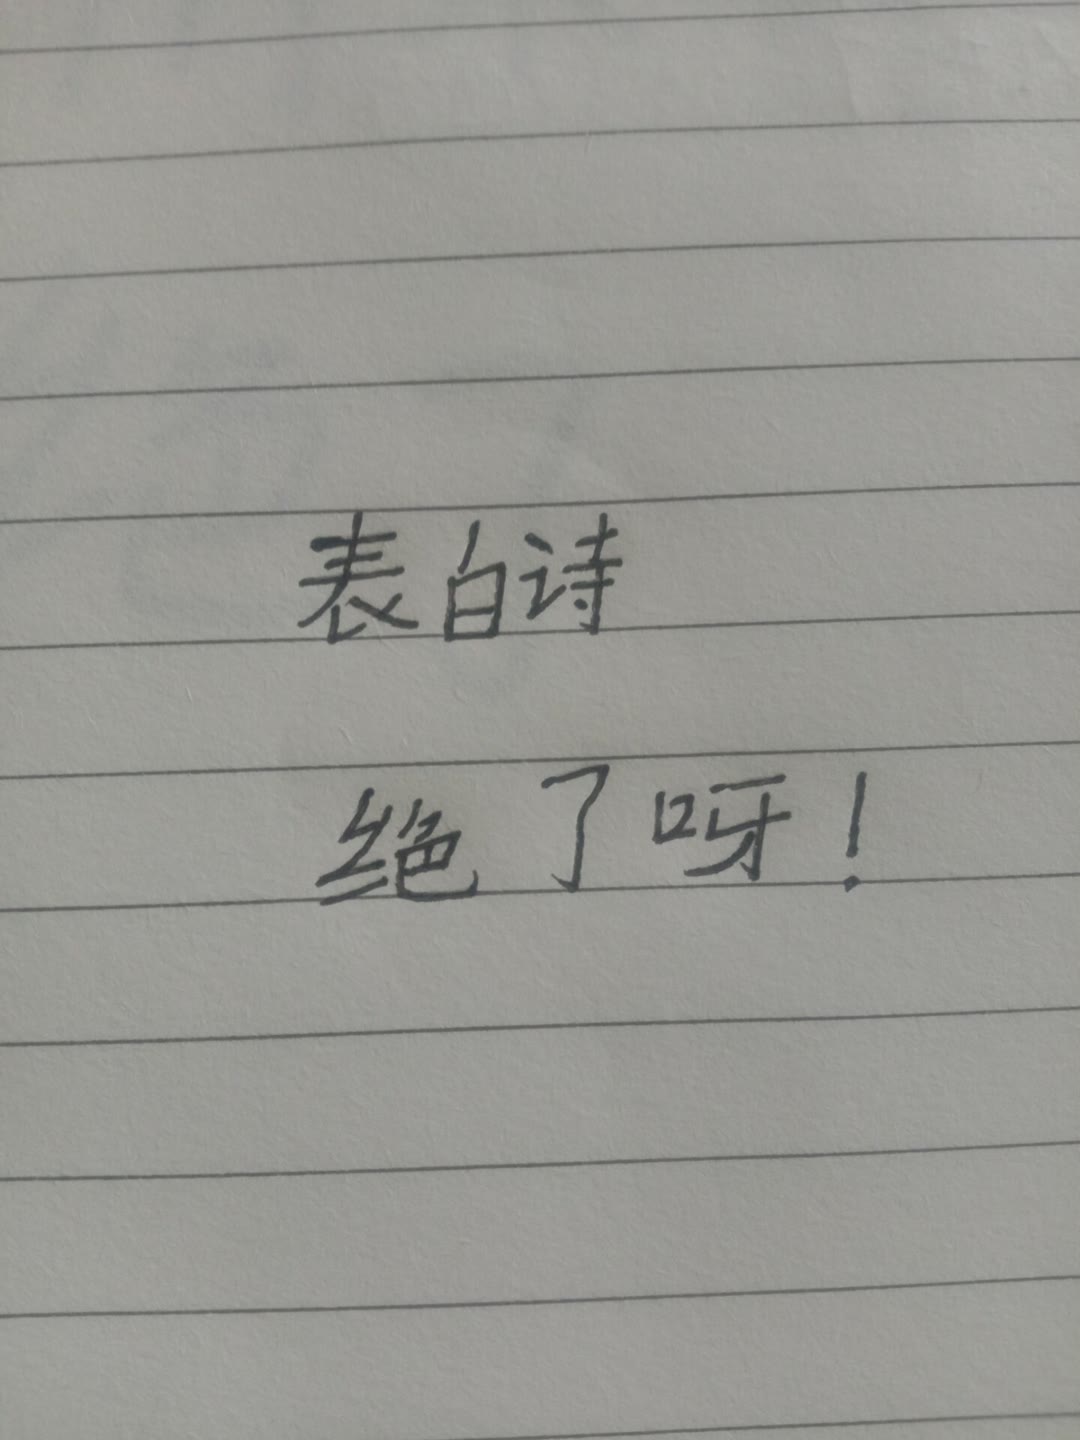 表白诗
绝了呀！